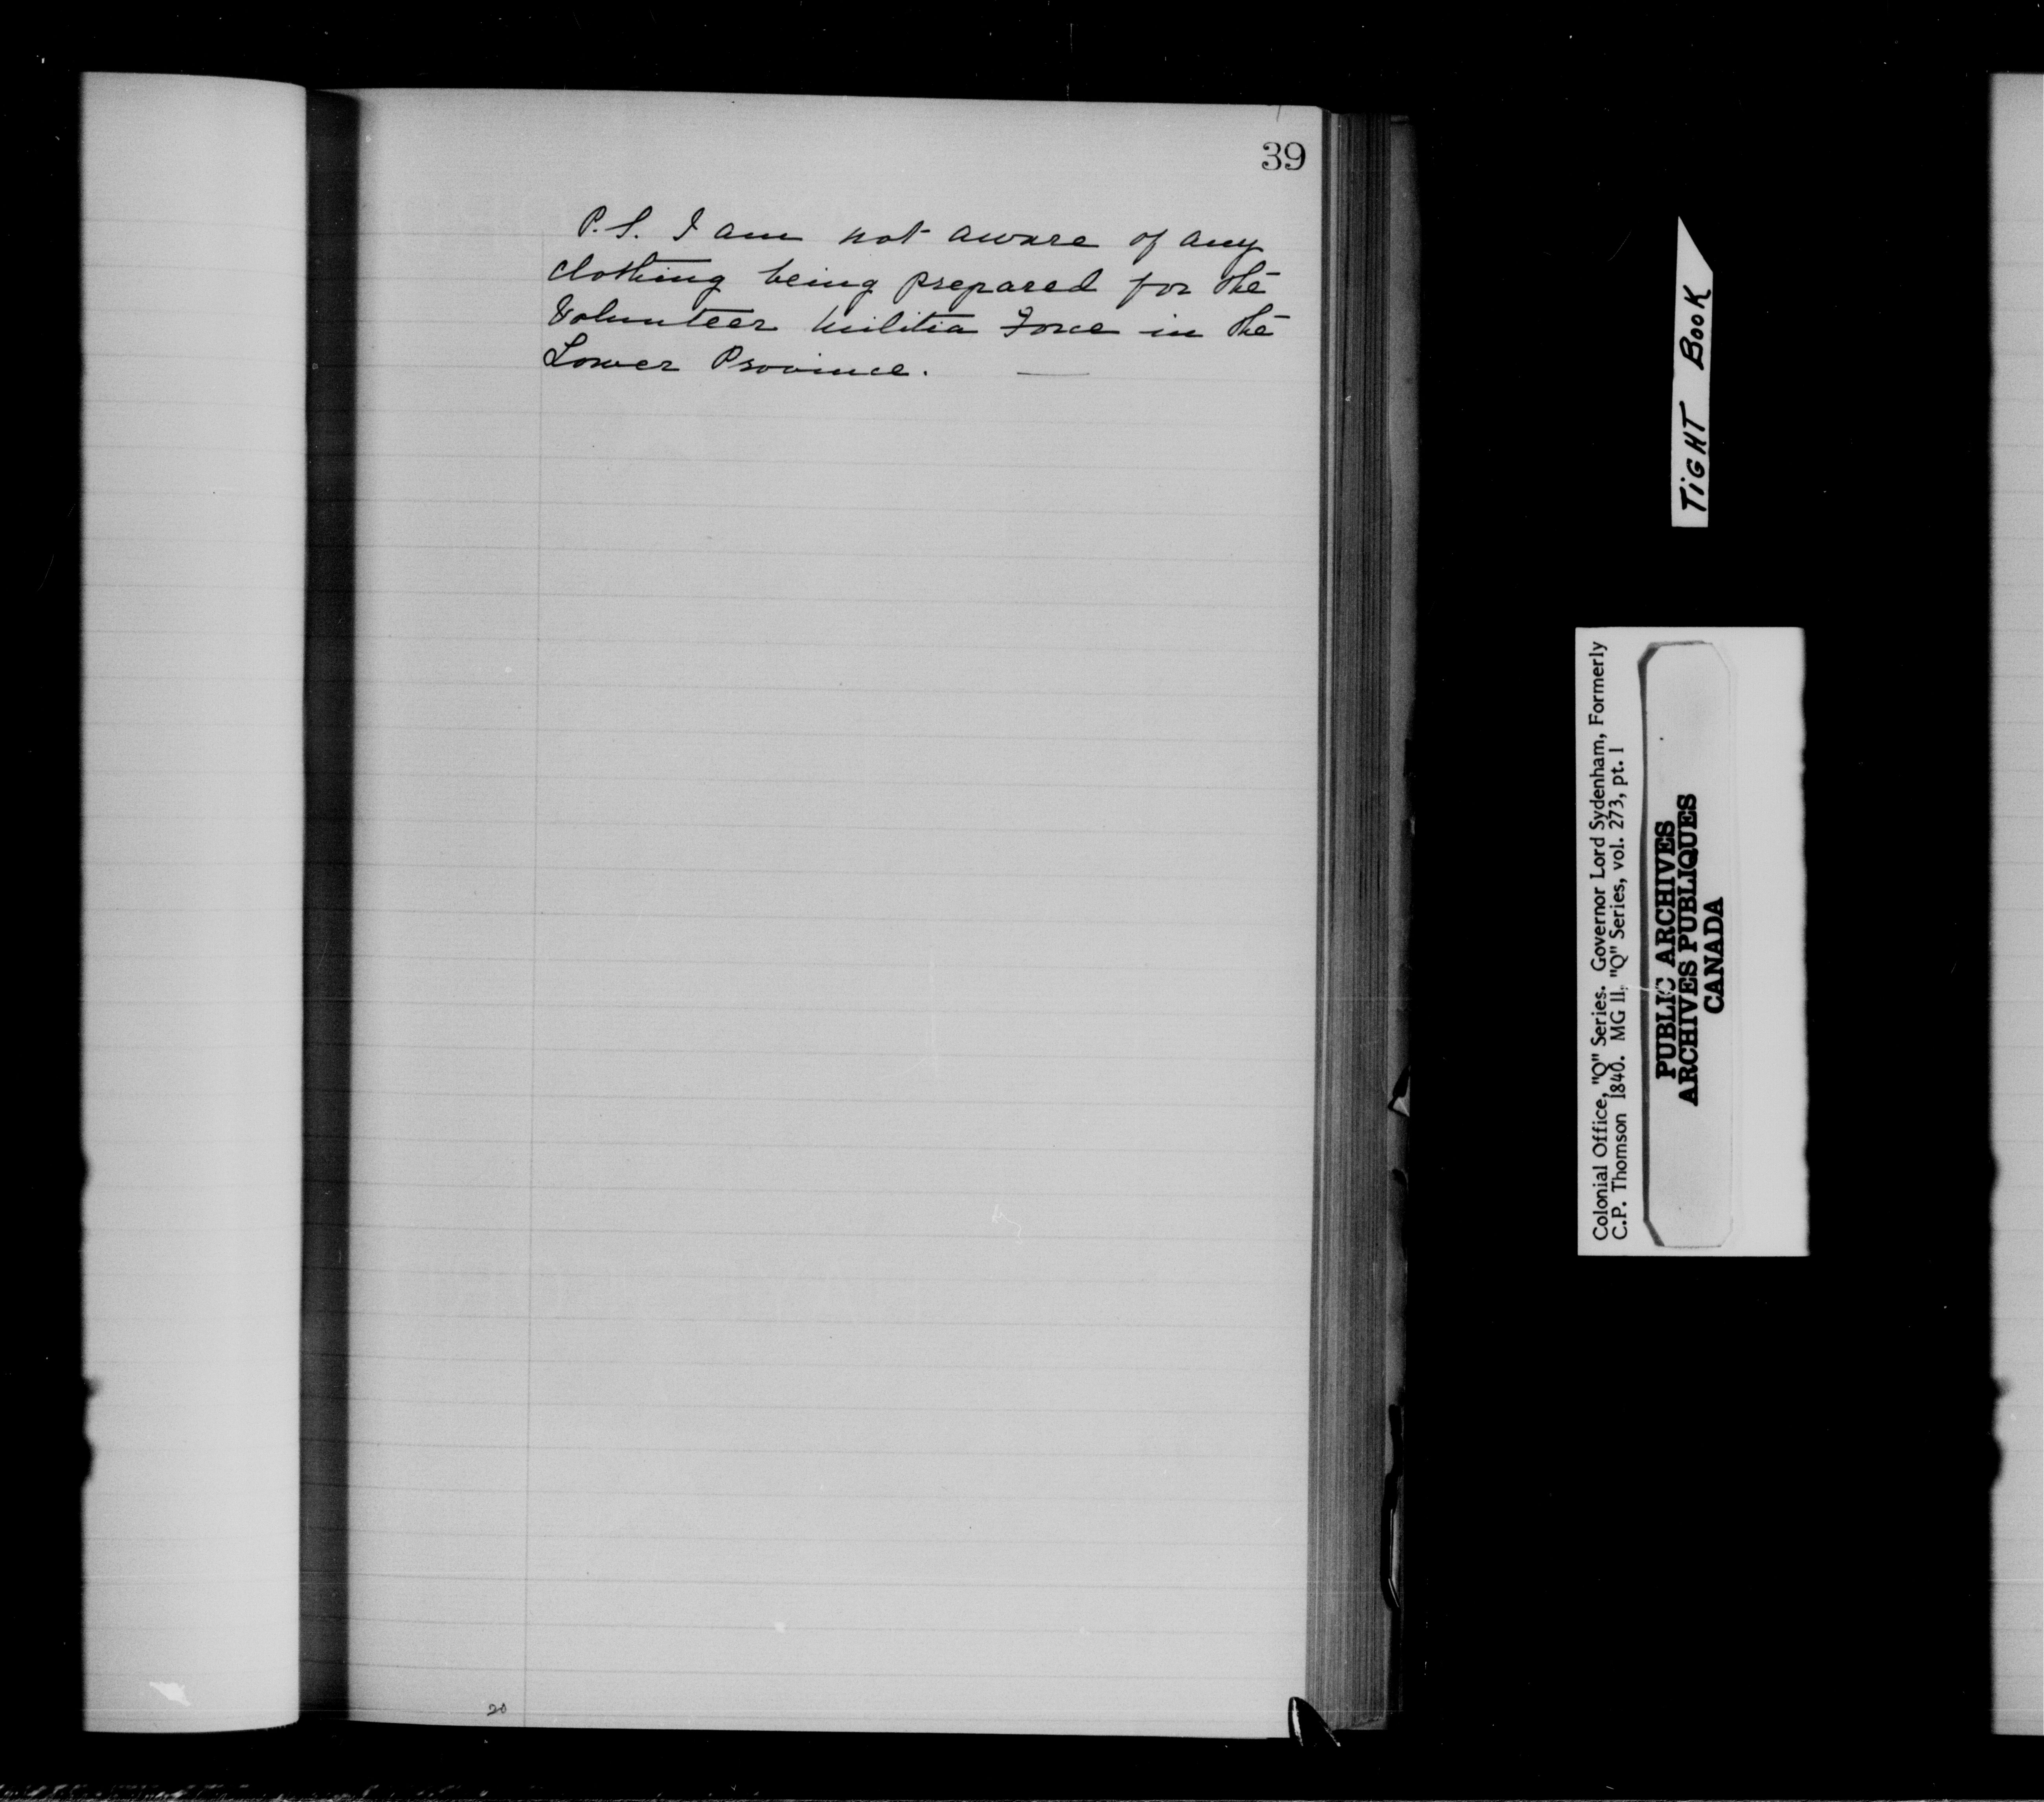 39
P.S. I am not aware of any
clothing being prepared for the
Volunteer Militia Force in the
Lower Province.
20
TIGHT BOOK
Colonial Office, "Q" Series. Governor Lord Sydenham, Formerly
C.P. Thomson 1840. MG 11, "Q" Series, vol. 273, pt. 1
PUBLIC ARCHIVES
ARCHIVES PUBLIQUES
CANADA